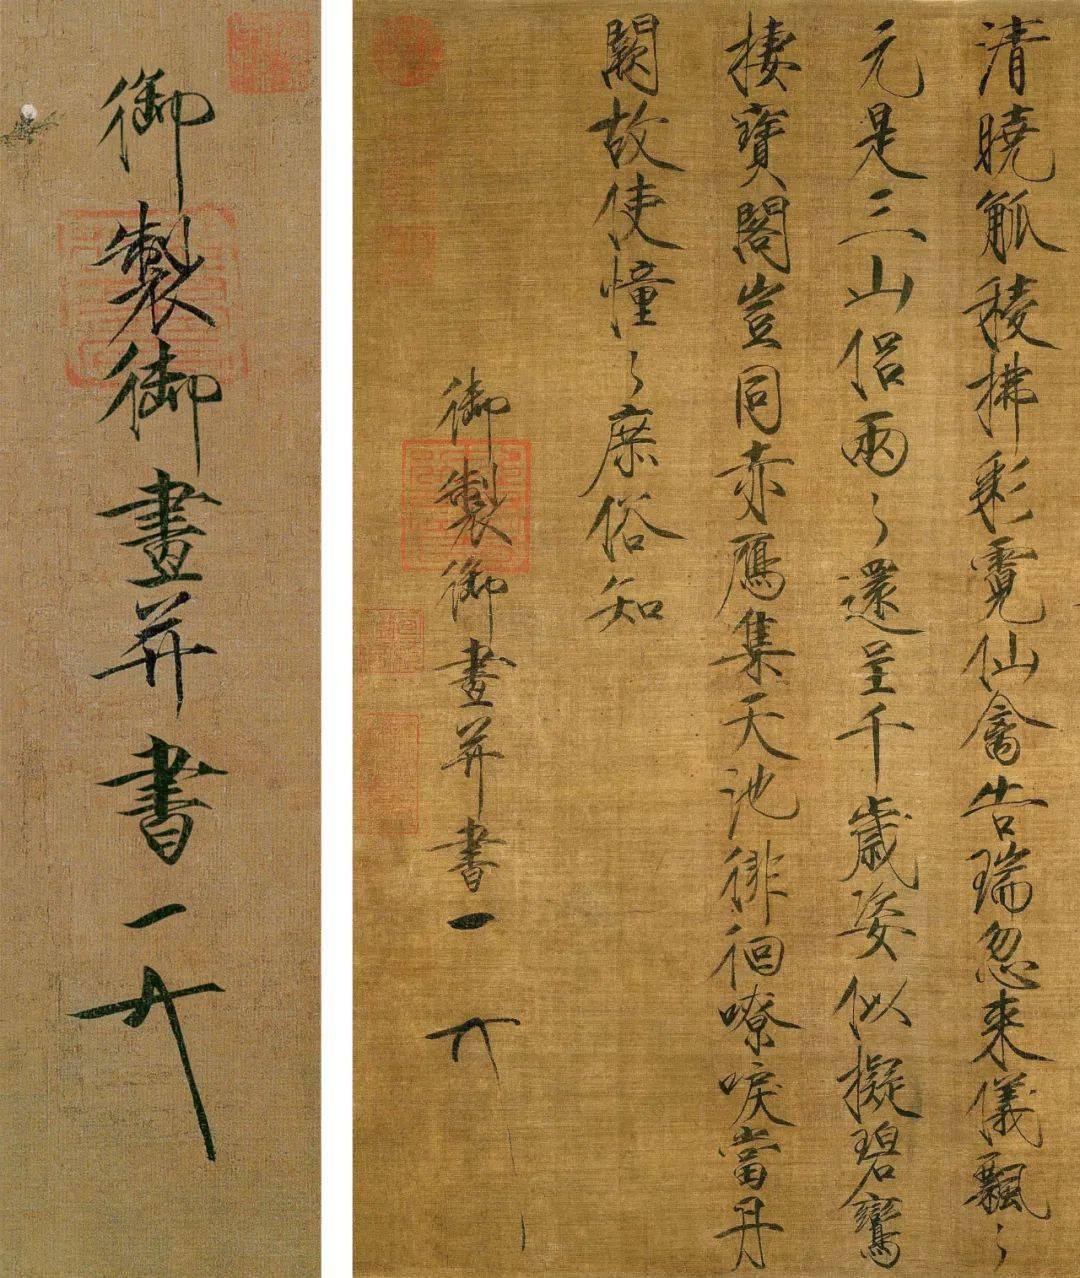 清曉觚稜拂彩霓仙禽告瑞忽來儀飄々
元是三山侶兩々還呈千歲姿似擬碧鸞
棲寶閣豈同赤鴈集天池徘徊嘹唳當丹
闕故使憧々庶俗知
御製御畫并書
御製御畫并書